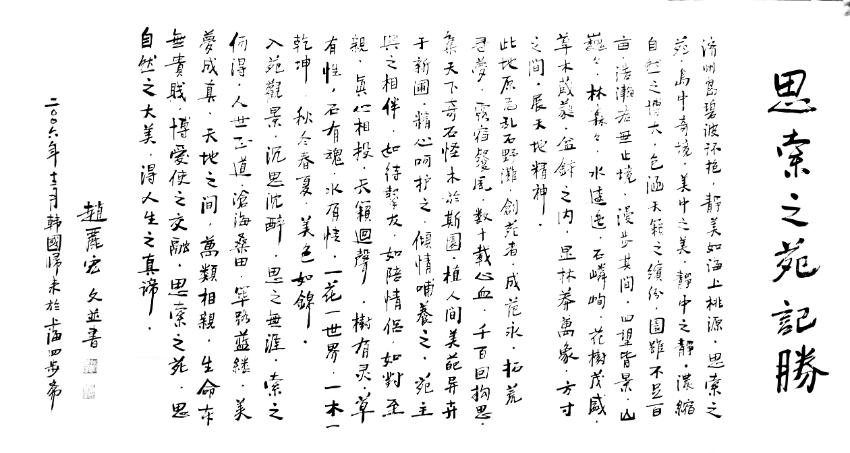 思索之苑記勝
濟州島碧波环抱．靜美如海上桃源．思索之
苑．島中奇境．美中之美．靜中之靜．濃縮
自然之博大．包涵天籁之缤纷．園雖不足百
亩．浩瀚若無止境．漫步其間．四望皆景．山
巍々．林森々．水迢迢．石嶙峋．花樹茂盛．
草木葳蕤．盆缽之内．显林莽萬象．方寸
之間．展天地精神．
此地原為乱石野灘．創苑者．成范永．拓荒
尋夢．露宿餐風．数十载心血．千百回构思．
集天下奇石怪木於斯園．植人間美葩异卉
于新圃．精心呵护之．傾情哺養之．苑主
與之相伴．如待挚友．如陪情侣．如對至
親．真心相投．天籟迴聲．樹有灵．草
有性．石有魂．水有情．一花一世界．一木一
乾坤．秋冬春夏．美色如錦．
入苑觀景．沉思沈醉．思之無涯．索之
何得．人世正道．滄海桑田．筚路蓝缕．美
夢成真．天地之间．萬類相親．生命本
無貴賤．博愛使之交融．思索之苑．思
自然之大美．得人生之真諦．
趙麗宏文並書
二〇〇六年十二月韩國归来於上海四步齋